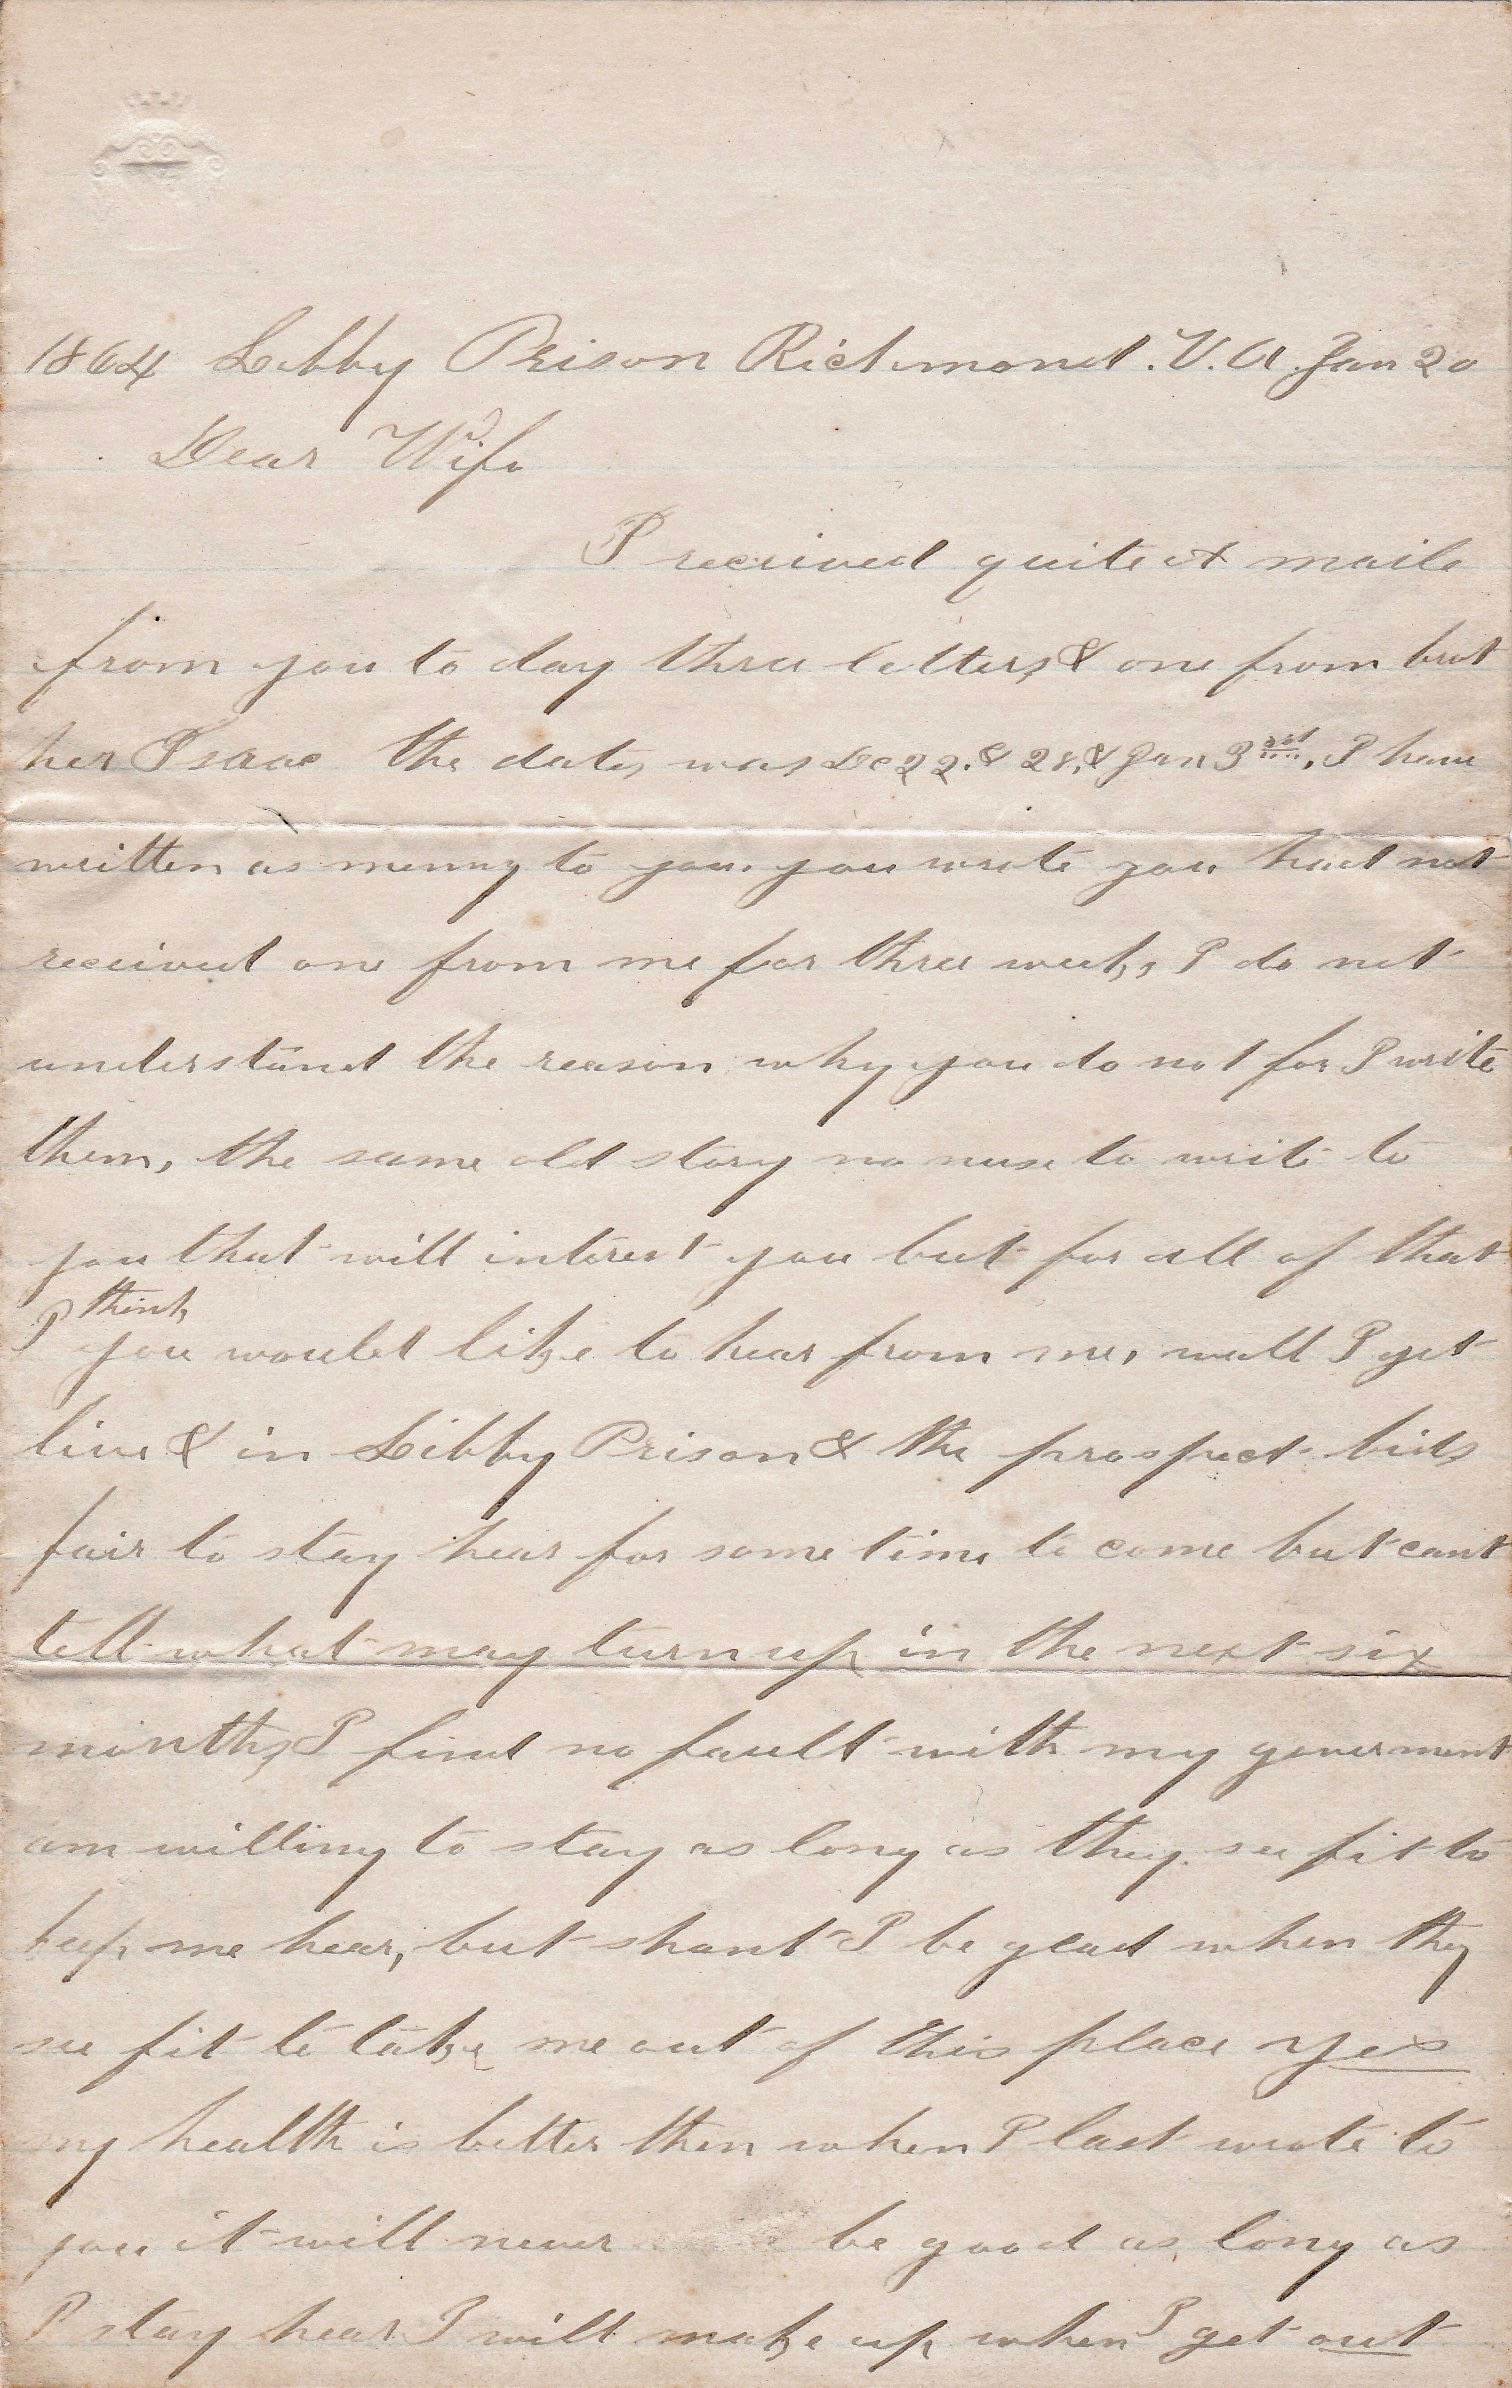 1864 Libby Prison Richmond. V. A. Jan 20
Dear Wife
I received quite A maile
from you to day three letters & one from brot
her Isaac the dates was De 22. & 28, & Jan 3, I have
written as menny to you. you wrote you had not
received one from me for three weeks, I do not
understand the reason why you do not for I write
them, the same old story no nuse to write to
you that will interest you but for all of that
I think
you would like to hear from me, well I yet
live & in Libby Prison & the prospect bids
fair to stay hear for some time to come but cant
tell what may turn up in the next six
months, I find no fault with my goverment
am willing to stay as long as they see fit to
keep me hear, but shant I be glad when they
see fit to take me out of this place yes
my health is better then when I last wrote to
you it will never be good as long as
I stay hear I will make up when I get out